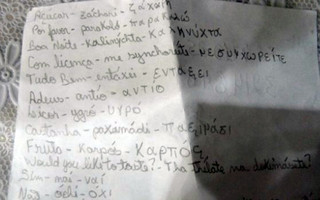 Açucar - zachari - ζάχαρη
Por favor - parakaló - παρακαλώ
Boa Noite - Kaliníchta - καληνύχτα
Com licença - me synchoreíte - ΜΕ ΣΥΓΧΩΡΕΊΤΕ
Tudo Bem - entáxei - ΕΝΤΆΞΕΙ
Adeus - antío - ΑΝΤΊΟ
- ygró - ΥΓΡΌ
Castanha - paximádi - ΠΑΞΙΜΆΔΙ
Fruta - Karpós - ΚΑΡΠΌΣ
Would you like to taste? - Tha thélate na dokimásete?
Sim - naí - ναί
Não - óchi - ΟΧΙ